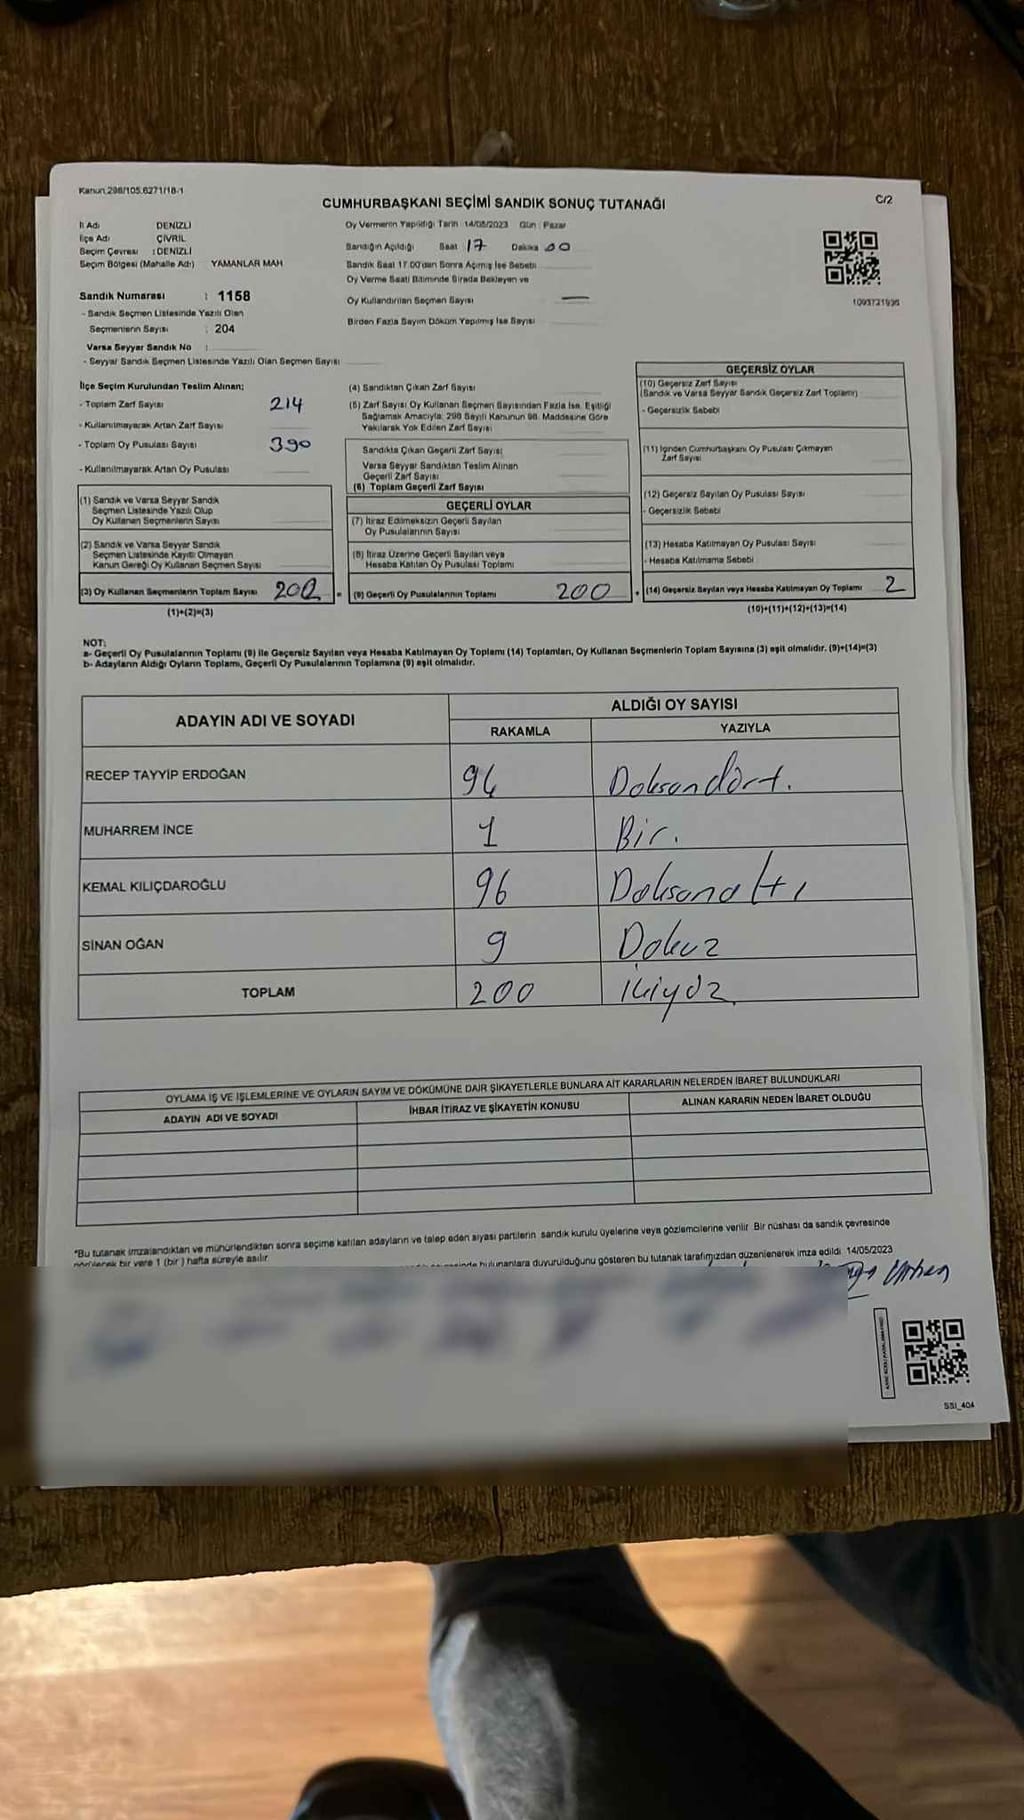 Kanun.298/105.6271/18-1
C/2
CUMHURBAŞKANI SEÇİMİ SANDIK SONUÇ TUTANAĞI
İl Adı DENİZLİ
İlçe Adı ÇİVRİL
Seçim Çevresi : DENİZLİ
Seçim Bölgesi (Mahalle Adı) YAMANLAR MAH
Sandık Numarası : 1158
- Sandık Seçmen Listesinde Yazılı Olan
Seçmenlerin Sayısı : 204
Varsa Seyyar Sandık No :
- Seyyar Sandık Seçmen Listesinde Yazılı Olan Seçmen Sayısı
Oy Vermenin Yapıldığı Tarih : 14/05/2023 Gün : Pazar
Sandığın Açıldığı Saat 17 Dakika 00
Sandık Saat 17.00'dan Sonra Açılmış İse Sebebi
Oy Verme Saati Bitiminde Sırada Bekleyen ve
Oy Kullandırılan Seçmen Sayısı —
Birden Fazla Sayım Döküm Yapılmış İse Sayısı
1093721936
İlçe Seçim Kurulundan Teslim Alınan;
- Toplam Zarf Sayısı 214
- Kullanılmayarak Artan Zarf Sayısı
- Toplam Oy Pusulası Sayısı 390
- Kullanılmayarak Artan Oy Pusulası
(1) Sandık ve Varsa Seyyar Sandık
Seçmen Listesinde Yazılı Olup
Oy Kullanan Seçmenlerin Sayısı
(2) Sandık ve Varsa Seyyar Sandık
Seçmen Listesinde Kayıtlı Olmayan
Kanun Gereği Oy Kullanan Seçmen Sayısı
(3) Oy Kullanan Seçmenlerin Toplam Sayısı 202 =
(1)+(2)=(3)
(4) Sandıktan Çıkan Zarf Sayısı
(5) Zarf Sayısı Oy Kullanan Seçmen Sayısından Fazla İse, Eşitliği
Sağlamak Amacıyla; 298 Sayılı Kanunun 98. Maddesine Göre
Yakılarak Yok Edilen Zarf Sayısı
Sandıkta Çıkan Geçerli Zarf Sayısı
Varsa Seyyar Sandıktan Teslim Alınan
Geçerli Zarf Sayısı
(6) Toplam Geçerli Zarf Sayısı
GEÇERLİ OYLAR
(7) İtiraz Edilmeksizin Geçerli Sayılan
Oy Pusulalarının Sayısı
(8) İtiraz Üzerine Geçerli Sayılan veya
Hesaba Katılan Oy Pusulası Toplamı
(9) Geçerli Oy Pusulalarının Toplamı 200 +
GEÇERSİZ OYLAR
(10) Geçersiz Zarf Sayısı
(Sandık ve Varsa Seyyar Sandık Geçersiz Zarf Toplamı)
- Geçersizlik Sebebi
(11) İçinden Cumhurbaşkanı Oy Pusulası Çıkmayan
Zarf Sayısı
(12) Geçersiz Sayılan Oy Pusulası Sayısı
- Geçersizlik Sebebi
(13) Hesaba Katılmayan Oy Pusulası Sayısı
- Hesaba Katılmama Sebebi
(14) Geçersiz Sayılan veya Hesaba Katılmayan Oy Toplamı 2
(10)+(11)+(12)+(13)=(14)
NOT:
a- Geçerli Oy Pusulalarının Toplamı (9) ile Geçersiz Sayılan veya Hesaba Katılmayan Oy Toplamı (14) Toplamları, Oy Kullanan Seçmenlerin Toplam Sayısına (3) eşit olmalıdır. (9)+(14)=(3)
b- Adayların Aldığı Oyların Toplamı, Geçerli Oy Pusulalarının Toplamına (9) eşit olmalıdır.
ADAYIN ADI VE SOYADI ALDIĞI OY SAYISI
RAKAMLA YAZIYLA
RECEP TAYYİP ERDOĞAN 94 Doksandört.
MUHARREM İNCE 1 Bir.
KEMAL KILIÇDAROĞLU 96 Doksanaltı
SİNAN OĞAN 9 Dokuz
TOPLAM 200 ikiyüz.
OYLAMA İŞ VE İŞLEMLERİNE VE OYLARIN SAYIM VE DÖKÜMÜNE DAİR ŞİKAYETLERLE BUNLARA AİT KARARLARIN NELERDEN İBARET BULUNDUKLARI
ADAYIN ADI VE SOYADI İHBAR İTİRAZ VE ŞİKAYETİN KONUSU ALINAN KARARIN NEDEN İBARET OLDUĞU
*Bu tutanak imzalandıktan ve mühürlendikten sonra seçime katılan adayların ve talep eden siyasi partilerin sandık kurulu üyelerine veya gözlemcilerine verilir. Bir nüshası da sandık çevresinde
görülecek bir yere 1 (bir) hafta süreyle asılır.
bulunanlara duyurulduğunu gösteren bu tutanak tarafımızdan düzenlenerek imza edildi. 14/05/2023
SSI_404